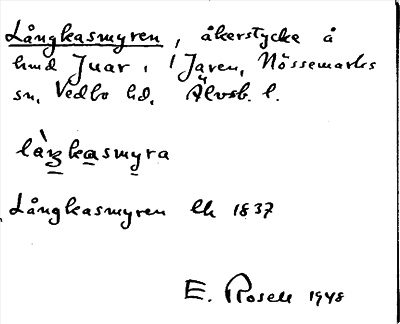 Långkasmyren, åkerstycke å
hmd Juar i Jaren, Nössemarks
sn, Vedbo hd, Älvsb. l.
làŋkasmyra
Långkasmyren lh 1837
E. Rosell 1948